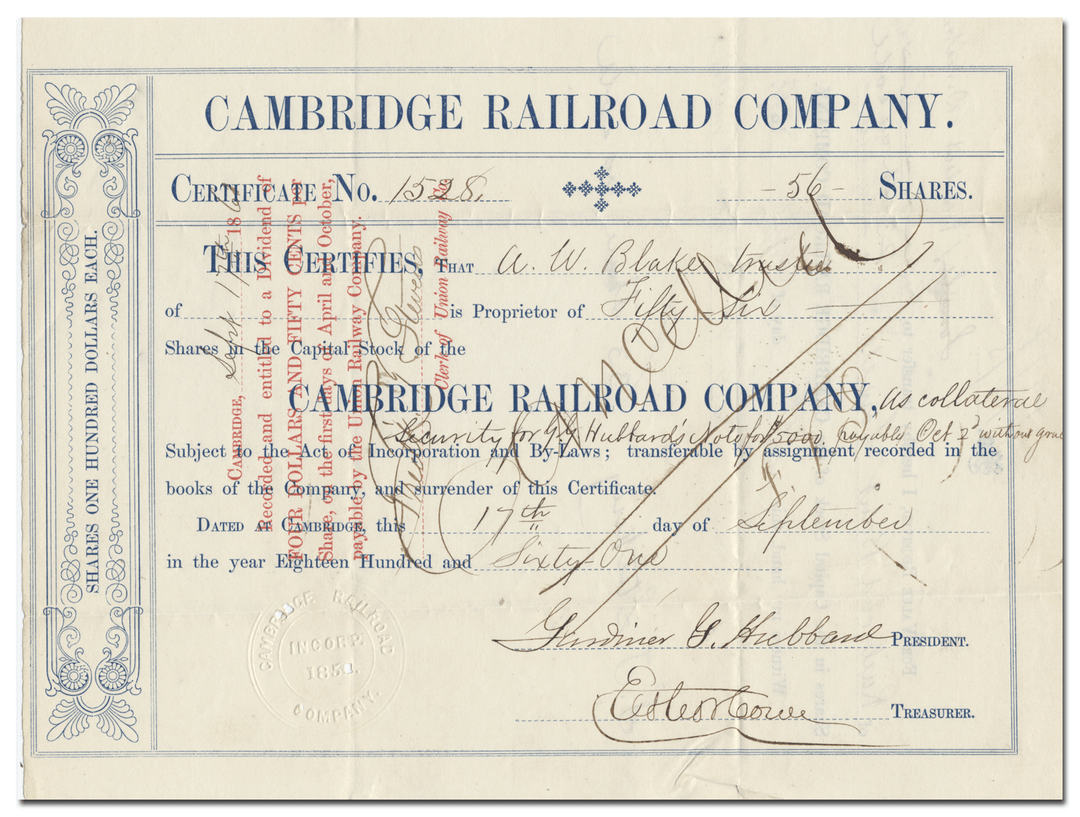 CAMBRIDGE RAILROAD COMPANY.
CERTIFICATE No. 1528. - 56 - SHARES.
THIS CERTIFIES, THAT A. W. Blake trustee
of is Proprietor of Fifty-six
Shares in the Capital Stock of the
CAMBRIDGE RAILROAD COMPANY, as collateral
Security for G G Hubbard's Note for $5000, payable Oct 2d without grace
Subject to the Act of Incorporation and By-Laws; transferable by assignment recorded in the
books of the Company, and surrender of this Certificate.
DATED AT CAMBRIDGE, this 17th day of September
in the year Eighteen Hundred and Sixty-One
Gardiner G. Hubbard PRESIDENT.
TREASURER.
SHARES ONE HUNDRED DOLLARS EACH.
CAMBRIDGE, Sept 17th 186
Recorded and entitled to a Dividend of
FOUR DOLLARS AND FIFTY CENTS per
Share, on the first days of April and October,
payable by the Union Railway Company.
Clerk of Union Railway Co.
Cancelled
CAMBRIDGE RAILROAD COMPANY.
INCORP.